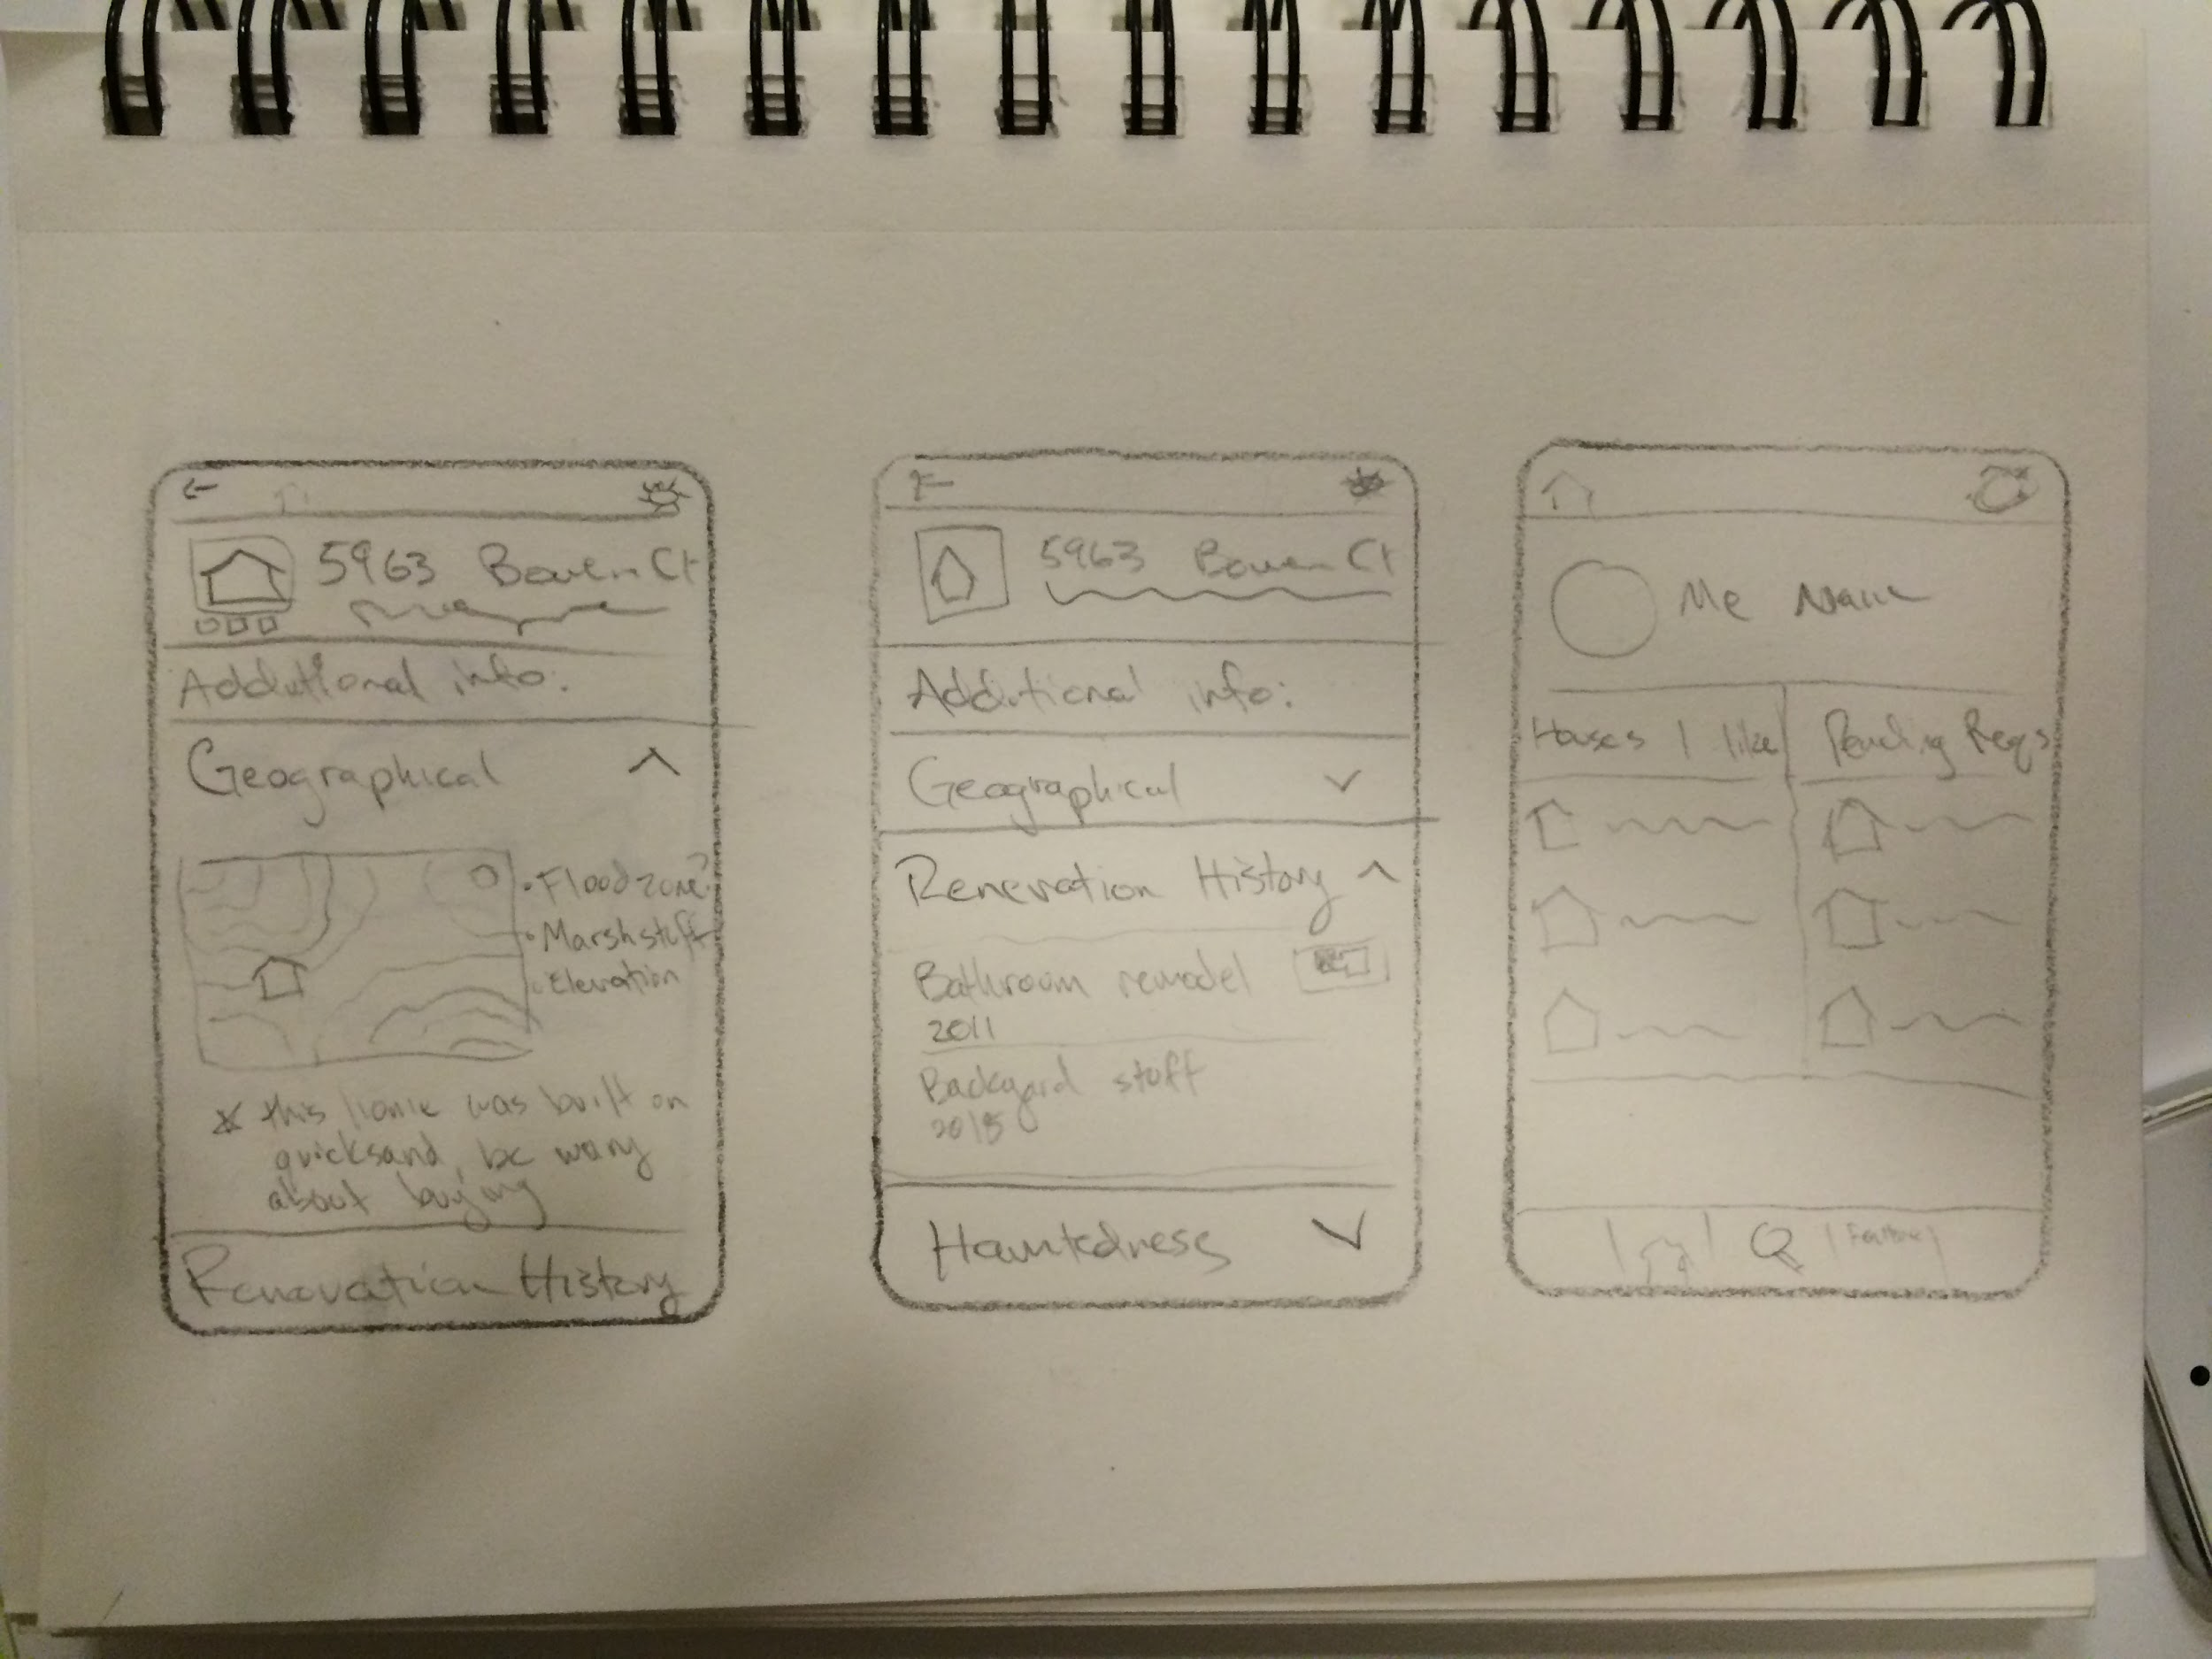 5963 Bowen Ct
Additional info:
Geographical
• Flood zone?
• Marsh stuff
• Elevation
* this home was built on
quicksand, be wary
about buying
Renovation History
5963 Bowen Ct
Additional info:
Geographical
Renovation History
Bathroom remodel
2011
Backyard stuff
2018
Hauntedness
Me Name
Houses I like
Pending Reqs